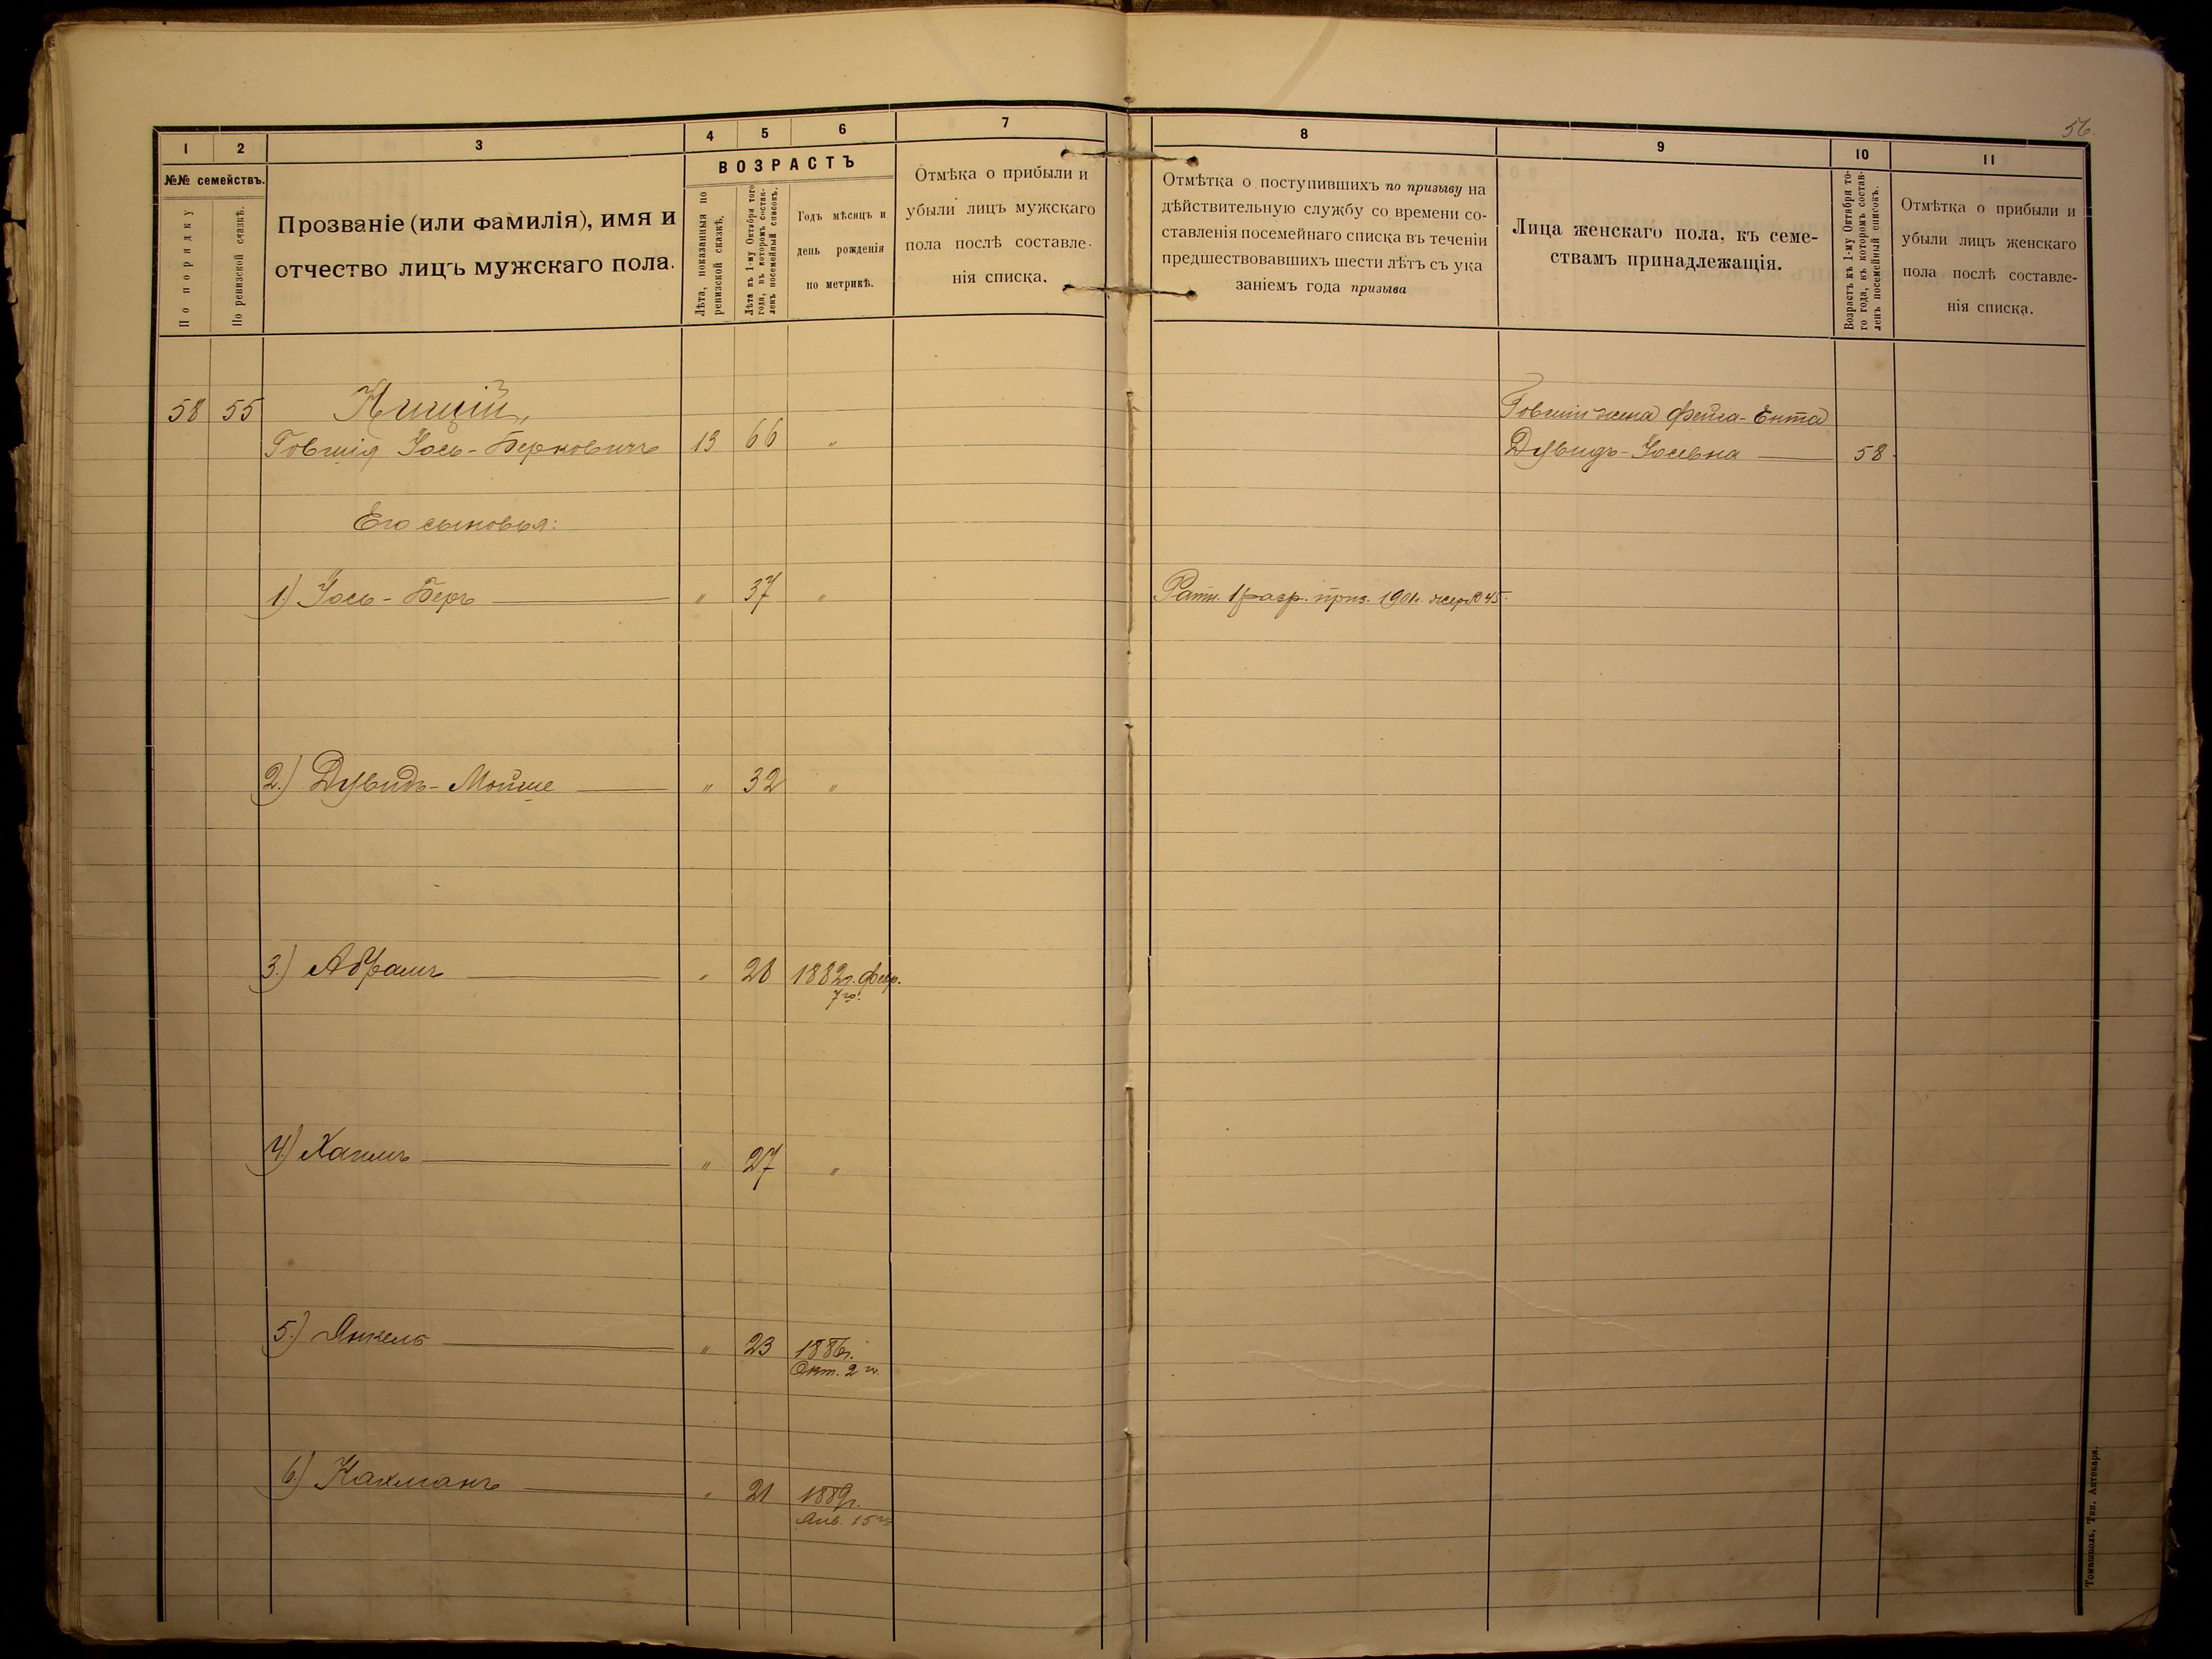 56.
1 2 3 4 5 6 7 8 9 10 11
№№ семействъ.
По порядку
По ревизской сказкѣ.
Прозваніе (или фамилія), имя и
отчество лицъ мужскаго пола.
ВОЗРАСТЪ
Лѣта, показанныя по
ревизской сказкѣ.
Лѣта къ 1-му Октября того
года, въ которомъ состав-
ленъ посемейный списокъ.
Годъ мѣсяцъ и
день рожденія
по метрикѣ.
Отмѣка о прибыли и
убыли лицъ мужскаго
пола послѣ составле-
нія списка.
Отмѣтка о поступившихъ по призыву на
дѣйствительную службу со времени со-
ставленія посемейнаго списка въ теченіи
предшествовавшихъ шести лѣтъ съ ука
заніемъ года призыва
Лица женскаго пола, къ семе-
ствамъ принадлежащія.
Возрастъ къ 1-му Октября то-
го года, въ которомъ состав-
ленъ посемейный списокъ.
Отмѣтка о прибыли и
убыли лицъ женскаго
пола послѣ составле-
нія списка.
58 55
Говшія Іось-Берковичъ 13 66 "
Говшіи жена Фейга-Ента
Дувидъ-Іосевна — 58
Его сыновья:
1) Іось-Беръ — " 37 " Ратн. 1 разр. приз. 1901г. жер № 45.
2.) Дувидъ-Мойше — " 32 "
3.) Абрамъ — " 28 1882г. февр.
7го.
4.) Хаимъ — " 27 "
5.) Янкель — " 23 1886г.
Окт. 2го.
6.) Нахманъ — " 21 1889г.
Янв. 15го
Томашполь, Тип. Аптекаря.